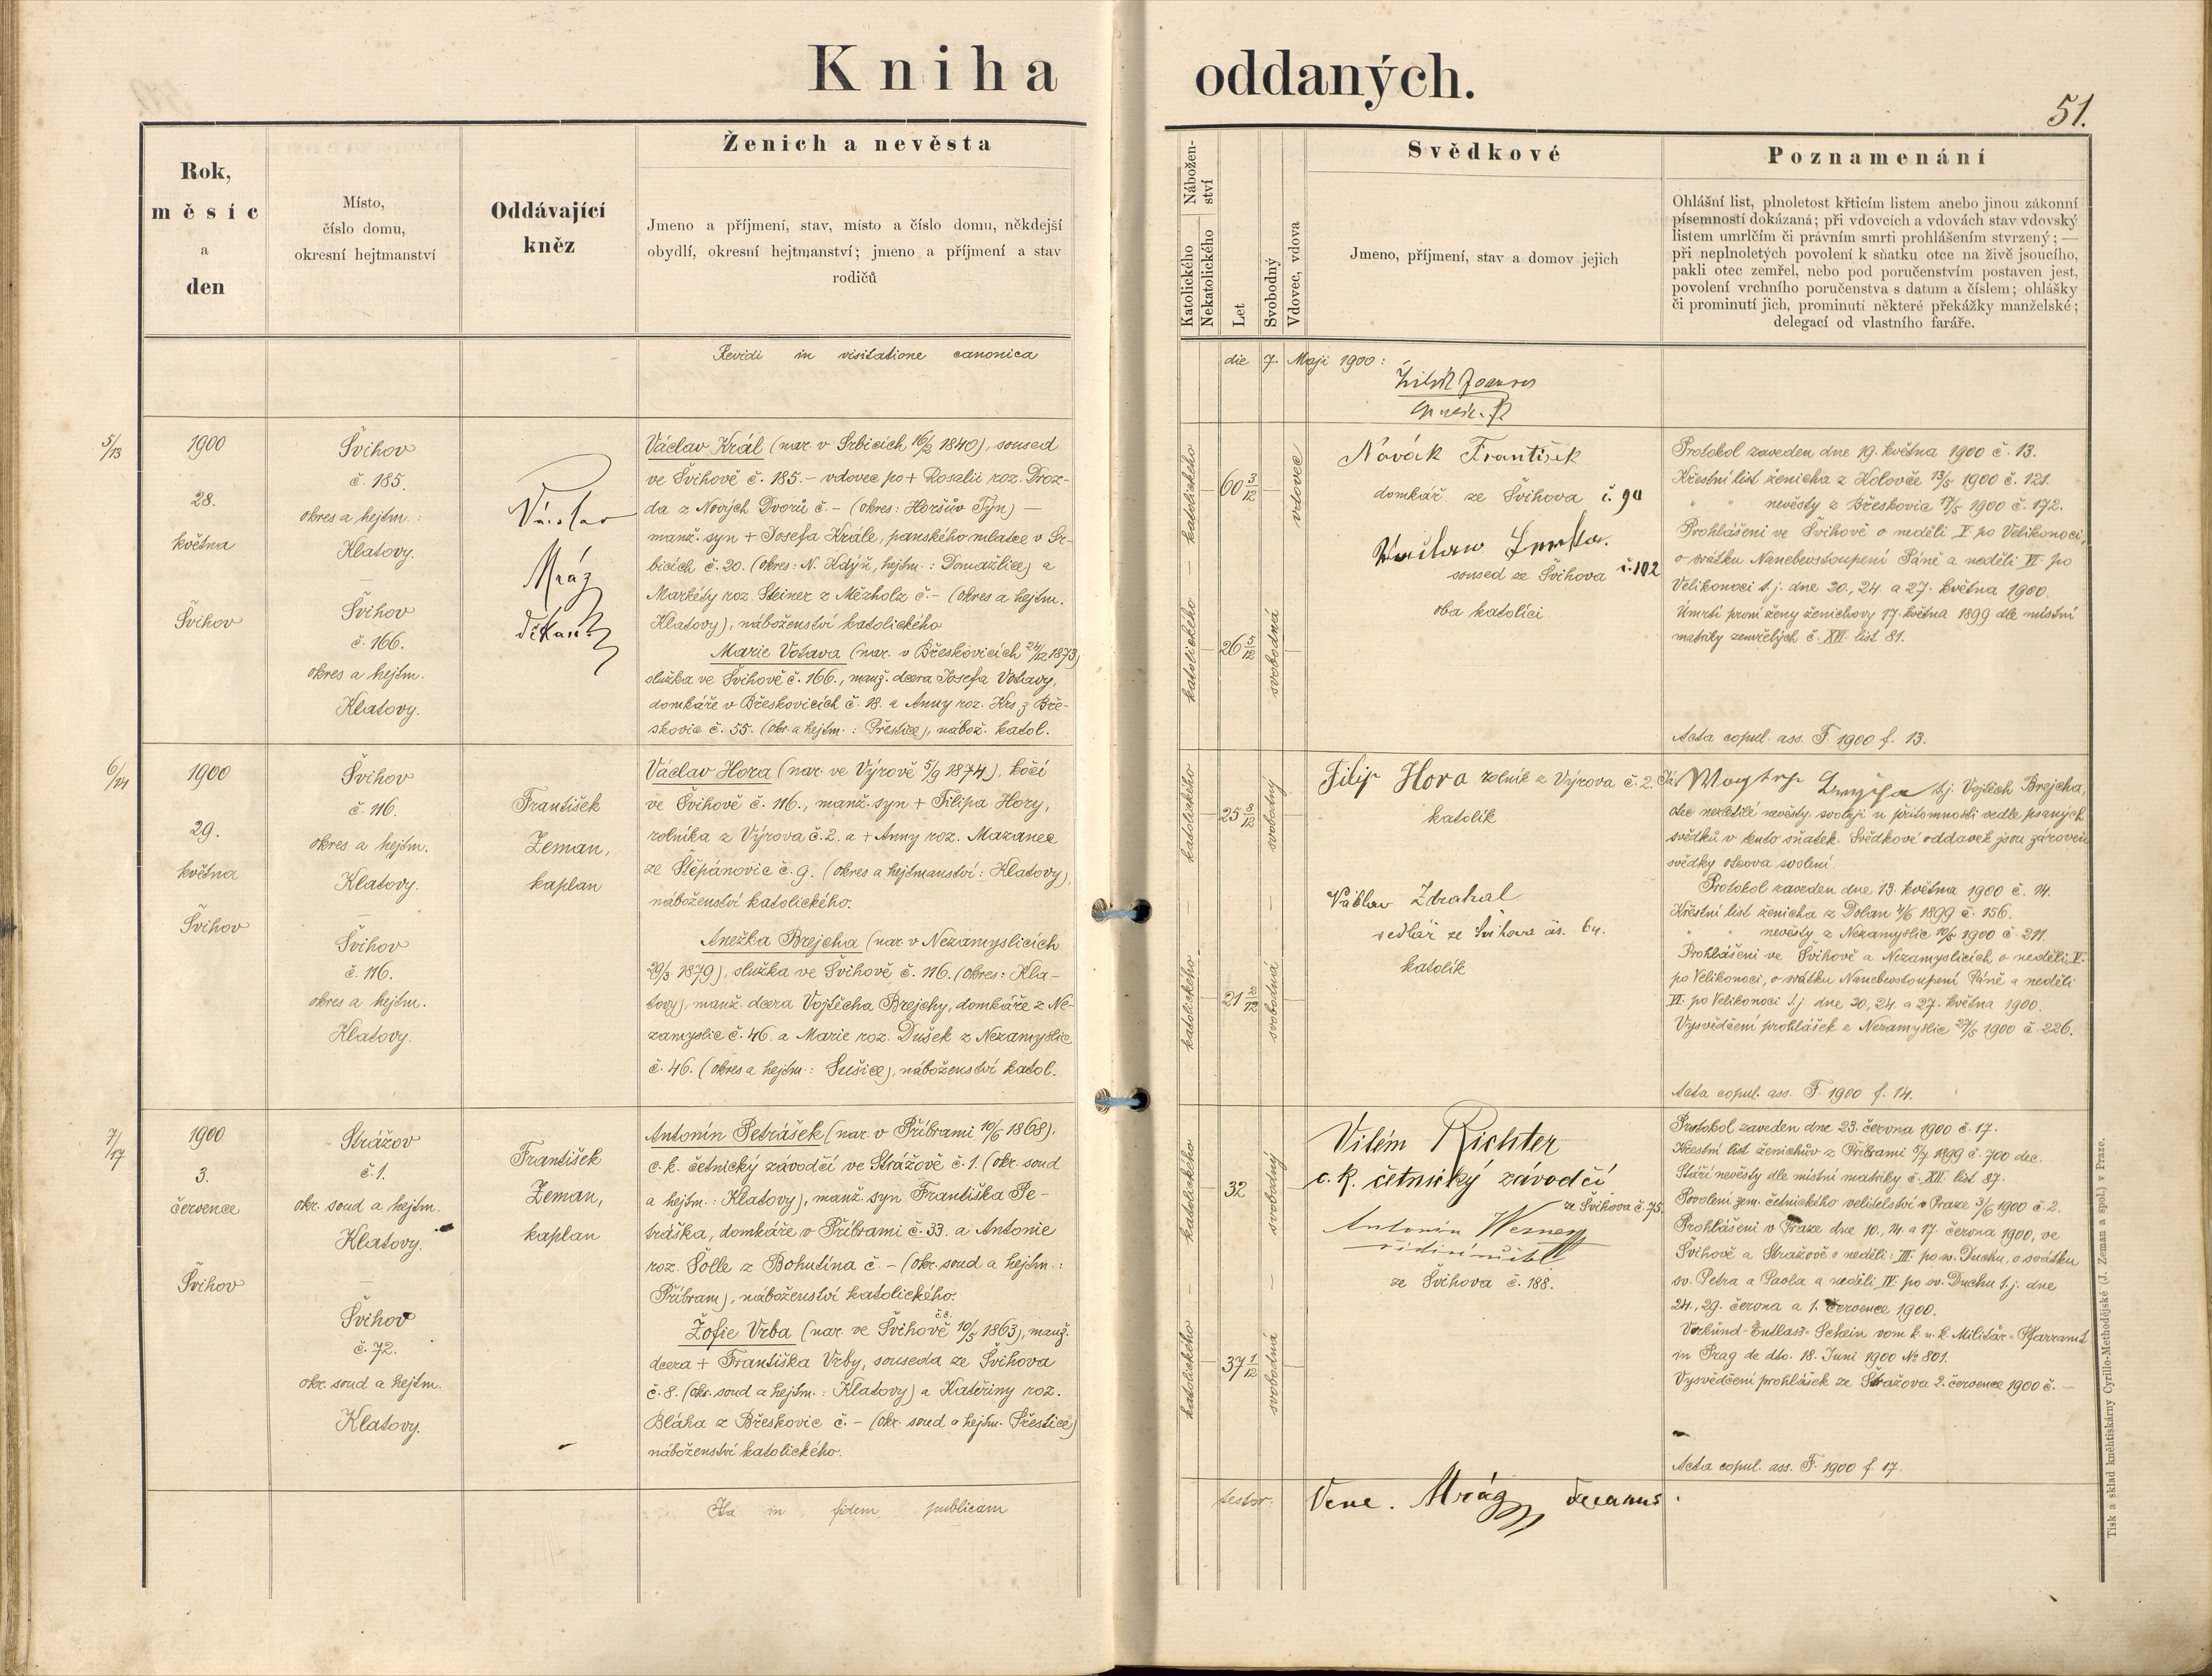 Kniha oddaných.
51.
Rok,
měsíc
a
den
Místo,
číslo domu,
okresní hejtmanství
Oddávající
kněz
Ženich a nevěsta
Jmeno a příjmení, stav, místo a číslo domu, někdejší
obydlí, okresní hejtmanství; jmeno a příjmení a stav
rodičů
Nábožen-
ství
Katolického
Nekatolického
Let
Svobodný
Vdovec, vdova
Svědkové
Jmeno, příjmení, stav a domov jejich
Poznamenání
Ohlášní list, plnoletost křticím listem anebo jinou zákonní
písemností dokázaná; při vdovcích a vdovách stav vdovský
listem umrlčím či právním smrti prohlášením stvrzený; —
při neplnoletých povolení k sňatku otce na živě jsoucího,
pakli otec zemřel, nebo pod poručenstvím postaven jest,
povolení vrchního poručenstva s datum a číslem; ohlášky
či prominutí jich, prominutí některé překážky manželské;
delegací od vlastního faráře.
Revidi in visitatione canonica die 7. Maji 1900:
5/13
1900
28.
května
Švihov
Švihov
č. 185.
okres a hejtm.:
Klatovy.
—
Švihov
č. 166.
okres a hejtm.
Klatovy.
Václav
Mráz
děkan
Václav Král (nar. v Srbicích 16/2 1840), soused
ve Švihově č. 185. – vdovec po + Rosalii roz. Droz-
da z Nových Dvorů č. – (okres: Horšův Týn) –
manž. syn + Josefa Krále, panského mlatce v Sr-
bicích č. 20. (okres: N. Kdýň, hejtm.: Domažlice) a
Markéty roz. Steiner z Mězholz č. – (okres a hejtm.
Klatovy), náboženství katolického
Marie Votava (nar. v Břeskovicích 24/12 1873)
služka ve Švihově č. 166., manž. dcera Josefa Votavy,
domkáře v Břeskovicích č. 18. a Anny roz. Krs z Bře-
skovic č. 55. (okr. a hejtm.: Přeštice), nábož. katol.
katolického — katolického
60 3/12
26 5/12
svobodná
vdovec
Novák František
domkář ze Švihova č. 90
soused ze Švihova č. 102
oba katolíci
Protokol zaveden dne 19. května 1900 č. 13.
Křestní list ženicha z Koloveč 13/5 1900 č. 121.
" " nevěsty z Břeskovic 17/5 1900 č. 172.
Prohlášeni ve Švihově o neděli V. po Velikonoci,
o svátku Nanebevstoupení Páně a neděli VI. po
Velikonoci t. j. dne 20., 24. a 27. května 1900.
Úmrtí první ženy ženichovy 17. května 1899 dle místní
matriky zemřelých č. XII. list 81.
Acta copul. ass. F. 1900 f. 13.
6/14
1900
29.
května
Švihov
Švihov
č. 116.
okres a hejtm.
Klatovy.
—
Švihov
č. 116.
okres a hejtm.
Klatovy.
František
Zeman,
kaplan
Václav Hora (nar. ve Výrově 5/9 1874), kočí
ve Švihově č. 116., manž. syn + Filipa Hory,
rolníka z Výrova č. 2. a + Anny roz. Mazanec
ze Štěpánovic č. 9. (okres a hejtmanství: Klatovy),
náboženství katolického.
Anežka Brejcha (nar. v Nezamyslicích
29/3 1879), služka ve Švihově č. 116. (okres: Kla-
tovy), manž. dcera Vojtěcha Brejchy, domkáře z Ne-
zamyslic č. 46. a Marie roz. Dušek z Nezamyslic
č. 46. (okres a hejtm.: Sušice), náboženství katol.
katolického — katolického
svobodný — svobodná
Filip Hora rolník z Výrova č. 2.
katolík
Václav Zdrahal
sedlář ze Švihova čís. 64.
katolík
tj. Vojtěch Brejcha,
otec nezletilé nevěsty svoluji u přítomnosti vedle psaných
svědků v tento sňatek. Svědkové oddavek jsou zároveň
svědky otcova svolení.
Protokol zaveden dne 13. května 1900 č. 14.
Křestní list ženicha z Dolan 4/6 1899 č. 156.
" " nevěsty z Nezamyslic 10/5 1900 č. 211.
Prohlášeni ve Švihově a Nezamyslicích o neděli V.
po Velikonoci, o svátku Nanebevstoupení Páně a neděli
VI. po Velikonoci t. j. dne 20, 24. a 27. května 1900.
Vysvědčení prohlášek z Nezamyslic 27/5 1900 č. 226.
Acta copul. ass. F. 1900 f. 14.
7/17
1900
3.
července
Švihov
Strážov
č. 1.
okr. soud a hejtm.
Klatovy.
—
Švihov
č. 72.
okr. soud a hejtm.
Klatovy.
František
Zeman,
kaplan
Antonín Petrášek (nar. v Příbrami 10/6 1868),
c. k. četnický závodčí ve Strážově č. 1. (okr. soud
a hejtm.: Klatovy), manž. syn Františka Pe-
tráška, domkáře v Příbrami č. 33. a Antonie
roz. Šolle z Bohutína č. – (okr. soud a hejtm.:
Příbram), náboženství katolického.
Žofie Vrba (nar. ve Švihově č. 8. 10/5 1863), manž.
dcera + Františka Vrby, souseda ze Švihova
č. 8. (okr. soud a hejtm.: Klatovy) a Kateřiny roz.
Bláha z Břeskovic č. – (okr. soud a hejtm. Přeštice)
náboženství katolického.
katolického — katolického
32
37 1/12
svobodný — svobodná
Vilém Richter
c. k. četnický závodčí
ze Švihova č. 75.
Antonín Werner
řídící učitel
ze Švihova č. 188.
Protokol zaveden dne 23. června 1900 č. 17.
Křestní list ženichův z Příbrami 5/7 1899 č. 700 dec.
Stáří nevěsty dle místní matriky č. XII. list 87.
Povolení zem. četnického velitelství v Praze 3/6 1900 č. 2.
Prohlášeni v Praze dne 10., 14. a 17. června 1900, ve
Švihově a Strážově o neděli: III. po sv. Duchu, o svátku
sv. Petra a Pavla a neděli IV. po sv. Duchu t. j. dne
24., 29. června a 1. července 1900.
Verkünd-Entlass-Schein vom k. u. k. Militär-Pfarramt
in Prag de dto. 18. Juni 1900 No 801.
Vysvědčení prohlášek ze Strážova 2. července 1900 č. –
Acta copul. ass. F. 1900 f. 17.
Ita in fidem publicam testor: Venc. Mráz decanus.
Tisk a sklad kněhtiskárny Cyrillo-Methodějské (J. Zeman a spol.) v Praze.